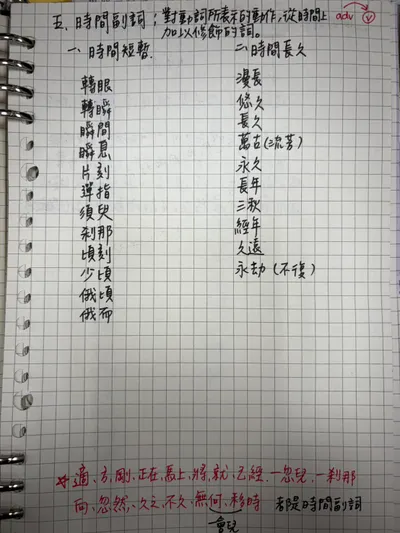 五、時間副詞：對動詞所表示的動作，從時間上
加以修飾的詞。
adv v
一、時間短暫
轉眼
轉瞬
瞬間
瞬息
片刻
彈指
須臾
剎那
頃刻
少頃
俄頃
俄而
二、時間長久
漫長
悠久
長久
萬古(流芳)
永久
長年
三秋
經年
久遠
永劫(不復)
☆適、方、剛、正在、馬上、將、就、已經、一忽兒、一剎那
向、忽然、久之、不久、無何、移時 都是時間副詞
會兒